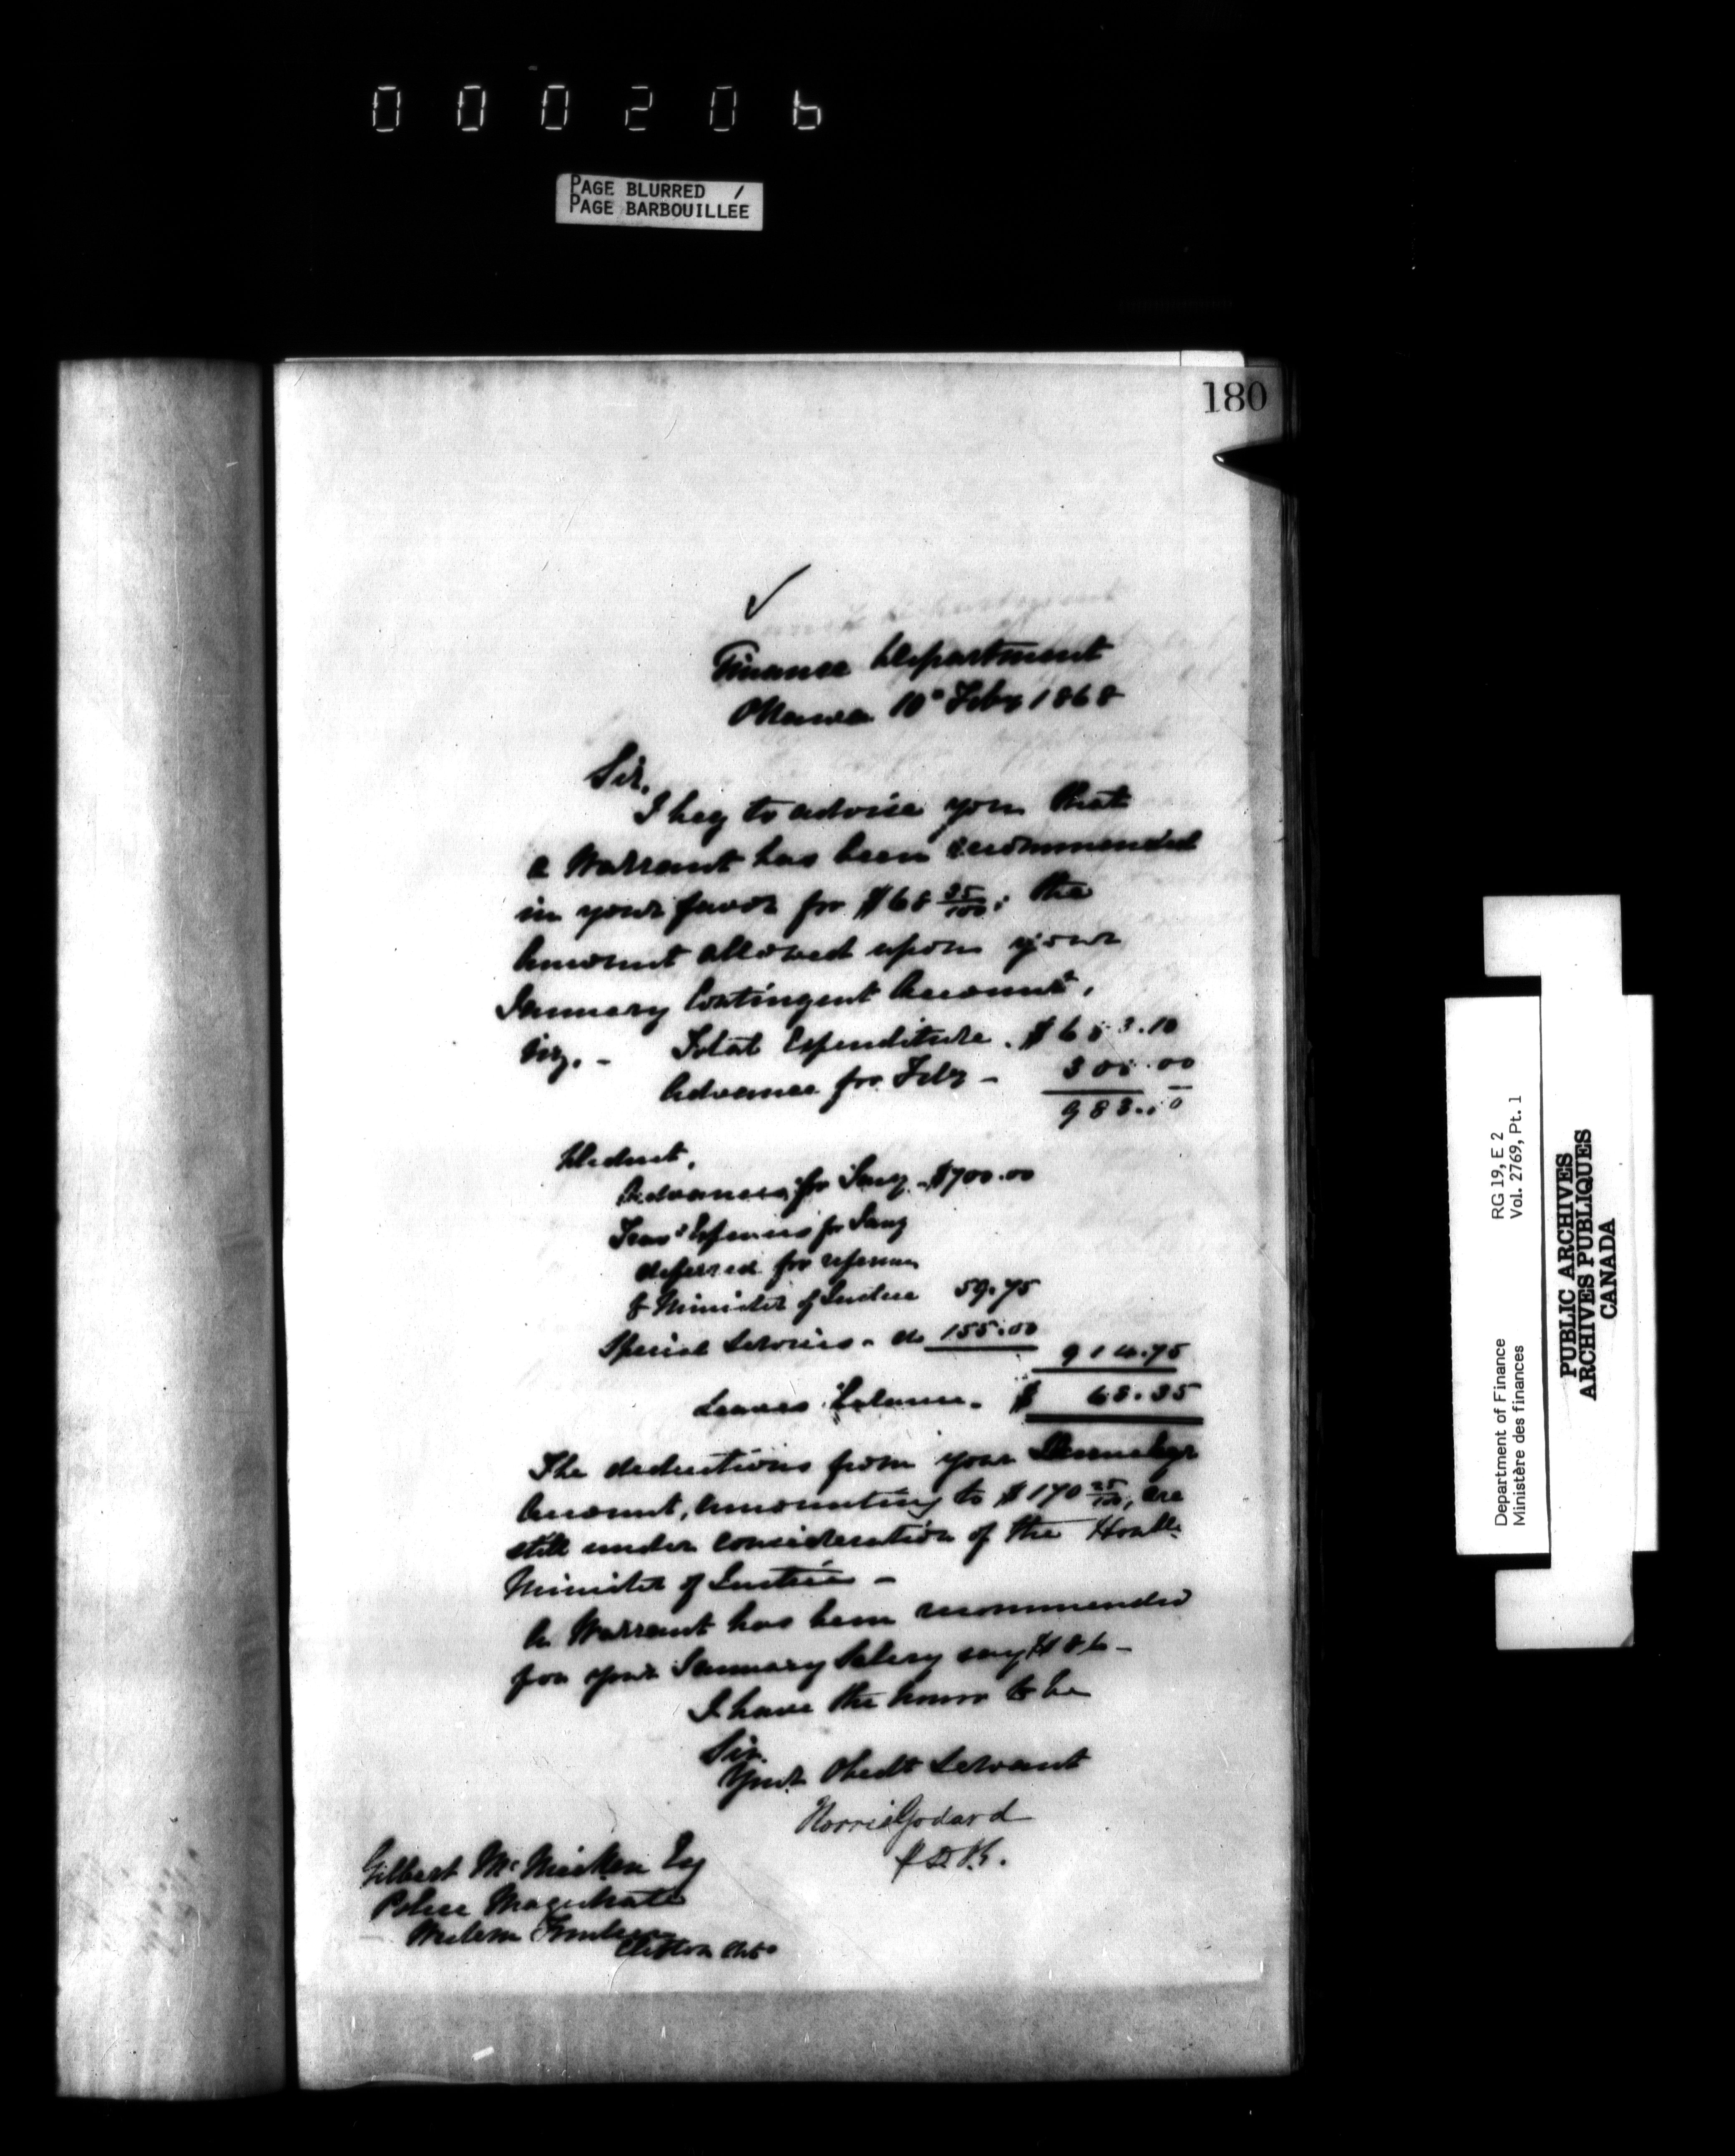 000206
PAGE BLURRED /
PAGE BARBOUILLÉE
180
Finance Department
Ottawa 10° Feby 1868
Sir,
I beg to advise you that
a Warrant has been recommended
in your favor for $68 35/100; the
Amount allowed upon your
January Contingent Account,
viz. - Total Expenditure. $683.10
Advance for Feby - 300.00
983.10
Deduct,
Advances for Jany - $700.00
Expenses for Jany
deferred for
Minister of Justice 59.75
Special Services - do 155.00
914.75
Leaves Balance. $ 68.35
The deductions from your December
Account, amounting to $170 25/100, are
still under consideration of the Honble
Minister of Justice -
A Warrant has been recommended
for your January Salary say $186 -
I have the honor to be
Sir.
Your Obedt Servant
Norris Godard
Gilbert McMicken Esq
Police Magistrate
Western Frontier
Clifton Ont°
Department of Finance RG 19, E 2
Ministère des finances Vol. 2769, Pt. 1
PUBLIC ARCHIVES
ARCHIVES PUBLIQUES
CANADA